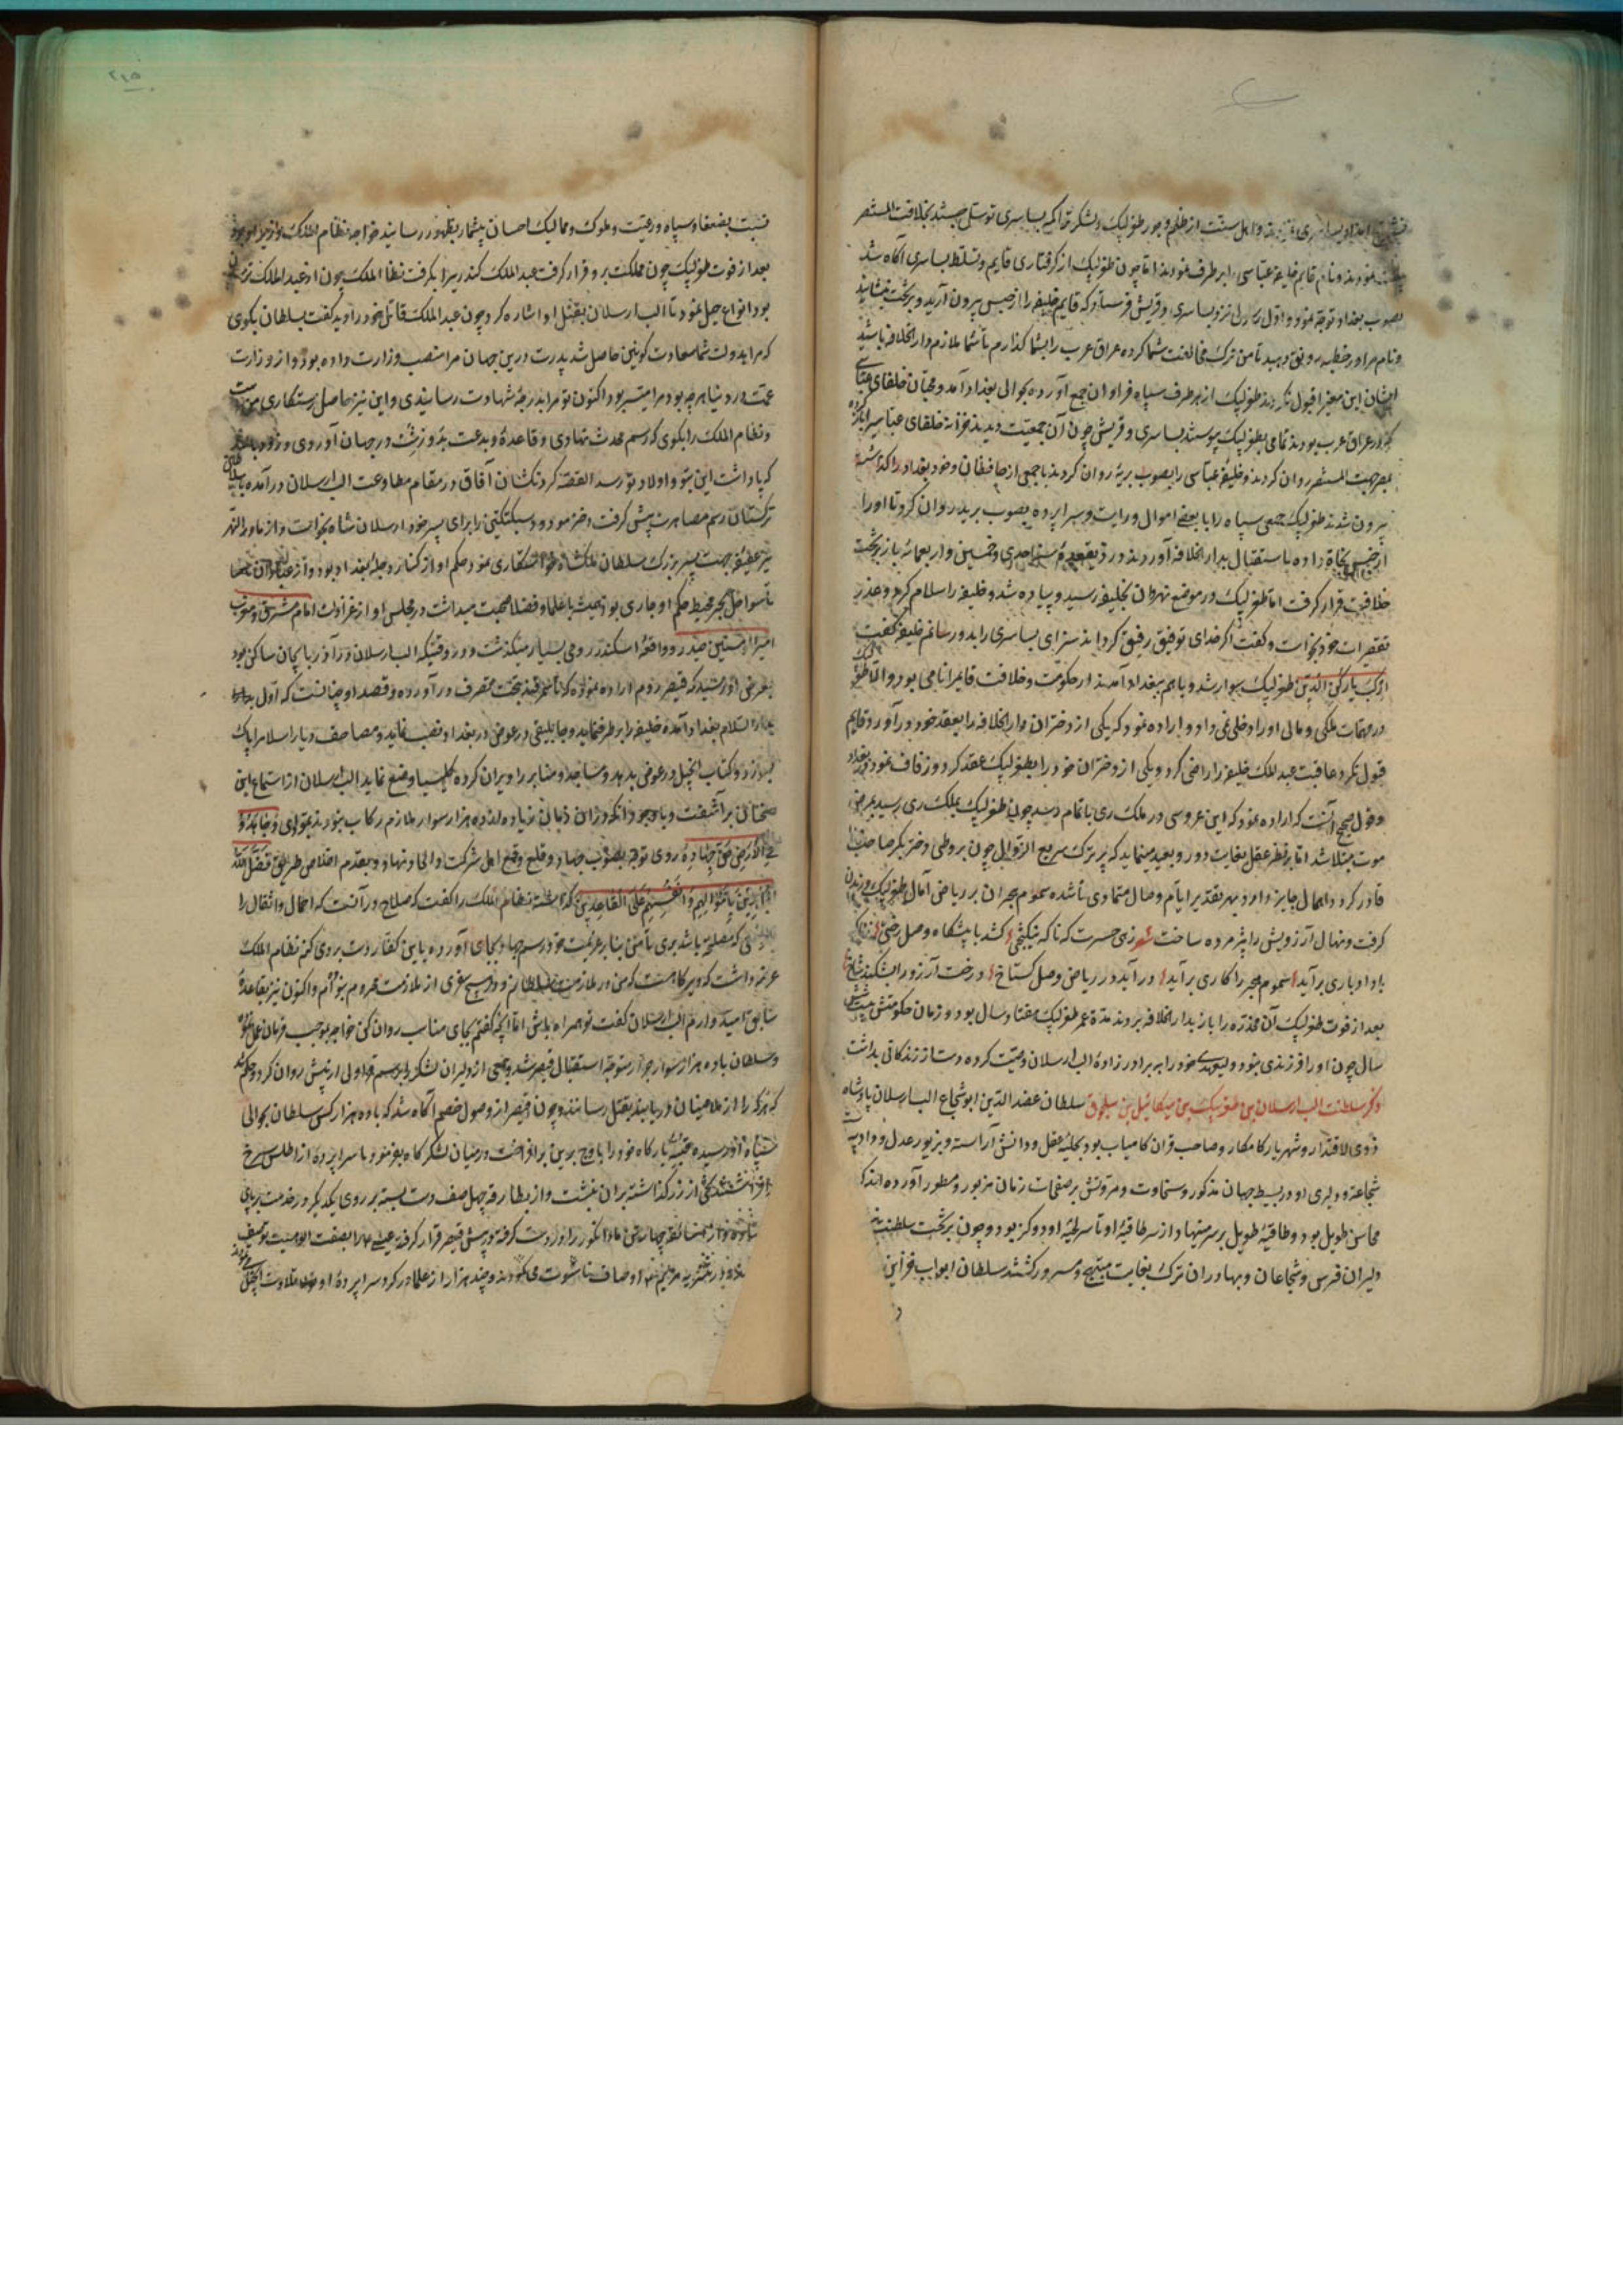 و اهل سنت از ظلم و جور طغرلبک و لشکر تراکمه بساسری توسل جستند بخلافت المستنصر
نمودند و نام قایم خلیفه عباسی را بر طرف نمودند اما چون طغرلبک از گرفتاری قایم و تسلط بساسری آگاه شد
بصوب بغداد توجه نمود و اول رسولی نزد بساسری و قریش فرستاد که قایم خلیفه را از حبس بیرون آرید و بر تخت بنشانید
و نام مرا در خطبه رونق دهید تا من ترک مخالفت شما کرده عراق عرب را بشما گذارم تا شما ملازم دار الخلافه باشید
ایشان این معنی را قبول نکردند طغرلبک از هر طرف سپاه فراوان جمع آورده بحوالی بغداد آمد و محبان خلفای عباسی
که در عراق عرب بودند تمامی بطغرلبک پیوستند بساسری و قریش چون آن جمعیت دیدند خزانه خلفای عباسیه را بار کرده
بمصر جهت المستنصر روان کردند و خلیفه عباسی را بصوب بریه روان کردند با جمعی از محافظان و خود بغداد را گذاشته
بیرون شدند طغرلبک جمعی سپاه را با بعضی اموال و رایت و سراپرده بصوب بریه روان کرد تا او را
از حبس نجاة داده باستقبال بدار الخلافه آوردند در ذیقعده سنه احدی و خمسین و اربعمائه باز بر تخت
خلافت قرار گرفت اما طغرلبک در موضع نهروان بخلیفه رسید و پیاده شد و خلیفه را سلام کرد و عذر
تقصیرات خود بخواست و گفت اگر خدای توفیق رفیق گرداند سزای بساسری را بدو رسانم خلیفه گفت
ارکب یا رکن الدین طغرلبک سوار شد و باهم ببغداد آمدند از حکومت و خلافت قایم را نامی بود و الا طغرلبک
در مهمات ملکی و مالی او را دخلی نمی داد و اراده نمود که یکی از دختران دار الخلافه را بعقد خود در آورد قایم
قبول نکرد عاقبت عبد الملک خلیفه را راضی کرد و یکی از دختران خود را بطغرلبک عقد کرد و زفاف نمود در بغداد
و قول صحیح آنست که اراده نمود که این عروسی در ملک ری باتمام رسد چون طغرلبک بملک ری رسید بمرض
موت مبتلا شد اما بر نظر عقل بغایت دور و بعید مینماید که پیر ترک سریع الزوال چون بر وطی دختر بکر صاحب
قادر گردد و اهمال جایز دارد بهر تقدیر ایام وصال متمادی نا شده سموم هجران بر ریاض آمال طغرلبک وزیدن
گرفت و نهال آرزویش را پژمرده ساخت شعر زهی حسرت که ناگه نیکبختی کشد با پیشگاه وصل رختی
باد ادباری برآید سموم هجر را کاری برآید درآید در ریاض وصل گستاخ درخت آرزو را بشکند شاخ
بعد از فوت طغرلبک آن مخدره را باز بدار الخلافه بردند مدة عمر طغرلبک هفتاد سال بود و زمان حکومتش بیست و شش
سال چون او را فرزندی نبود ولیعهدی خود را به برادر زاده الب ارسلان وصیت کرده دست از زندگانی بداشت
ذکر سلطنت الب ارسلان بن طغرلبک بن میکائیل بن سلجوق سلطان عضد الدین ابو شجاع الب ارسلان پادشاه
ذوی الاقتدار و شهریار کامکار و صاحب قران کامیاب بود بحلیه عقل و دانش آراسته و بزیور عدل و داد
شجاعة و دلیری او در بسیط جهان مذکور و سخاوت و مروتش بر صفحات زمان مزبور و مسطور آورده اند که
محاسن طویل بود و طاقیه طویل بر سر مینهاد و از سر طاقیه او تا سر لحیه او دو گز بود و چون بر تخت سلطنت
دلیران فرس و شجاعان و بهادران ترک بغایت مبتهج و مسرور گشتند سلطان ابواب خزاین
٢١٥
نسبت بضعفا و سپاه و رعیت و ملوک و ممالیک احسان بیشمار بظهور رسانید خواجه نظام الملک
بعد از فوت طغرلبک چون مملکت برو قرار گرفت عبد الملک کندریرا بگرفت نظام الملک چون از عبد الملک
بود انواع حیل نمود تا الب ارسلان بقتل او اشاره کرد و چون عبد الملک قاتل خود را دید گفت بسلطان بگوی
که مرا بدولت شما سعادت کونین حاصل شد پدرت درین جهان مرا منصب وزارت داده بود و از وزارت
عمت در دنیا هر چه بود مرا میسر بود اکنون تو مرا بدرجه شهادت رسانیدی و این نیز حاصل رستگاری من
و نظام الملک را بگوی که رسم محدث نهادی و قاعدة و بدعت بد و زشت در جهان آوردی و زود باشد
که پاداشت این بتو و اولاد تو رسد القصه گردنکشان آفاق در مقام مطاوعت الب ارسلان در آمده با سلاطین
ترکستان رسم مصاهرت پیش گرفت دختر مودود سبکتگین را برای پسر خود ارسلان شاه بخواست و از ماوراالنهر
نیز عفیفه جهت پسر بزرگ سلطان ملکشاه خواستگاری نمود حکم او از کنار دجله بغداد بود و از
تا سواحل بحر محیط حکم او جاری بود همیشه با علما و فضلا صحبت میداشت در مجلس او از غزوات امام مشرق و مغرب
امیر المؤمنین حیدر و واقعه اسکندر رومی بسیار میگذشت و در وقتیکه الب ارسلان در آذربایجان ساکن بود
بعرض او رسید که قیصر روم اراده نموده که تا سمرقند بتخت تصرف درآورده و قصد او چنانست که اول
بدار السلام بغداد آمده خلیفه را برطرف نماید و جاثلیقی در عوض در بغداد نصب نماید و مصاحف دیار اسلام را پاک
بسوزد و کتاب انجیل در عوض بدهد و مساجد و منابر را ویران کرده کلیسیا وضع نماید الب ارسلان از استماع این
سخنان بر آشفت و با وجود آنکه در آن زمان زیاده از ده هزار سوار ملازم رکاب نبودند بفحوای و جاهدوا
فی الارض حق جهاده روی توجه بصوب جهاد و قلع و قمع اهل شرکت و الحاد نهاد و بقدم اخلاص طریق تفضل الله
الذین باموالهم و انفسهم علی القاعدین گذاشته نظام الملک را گفت که صلاح در آنست که احمال و اثقال را
که مصلحت باشد بری تا من بنا بر عزیمت خود رسم جهاد بجای آورده باین کفار دست بردی کنم نظام الملک
عرضه داشت که دیرگاهست که من در ملازمت سلطانم و در هیچ سفری از ملازمت محروم نبوده ام و اکنون نیز بقاعده
سابق امیدوارم الب ارسلان گفت تو همراه باش اما آنچه گفتم بجای مناسب روان کن خواجه بموجب فرمان عمل نموده
و سلطان با ده هزار سوار جرار متوجه استقبال قیصر شد و جمعی از دلیران لشکر را برسم قراولی از پیش روان کرد و حکم شد
که هرکه را از ملاعینان دریابند بقتل رسانند و چون قیصر از وصول خصم آگاه شد که با ده هزار کس سلطان بحوالی
سپاه او رسیده قبه بارگاه خود را باوج برین برافراخت و در میان لشکرگاه بفرمود تا سراپرده از اطلس سرخ
افراشتند تختی از زر گذاشته بران بنشست و از بطارقه چهل صف دست بسته بر روی یکدیگر در خدمت بر پای
قیصر قرار گرفته عیسی را بصفت الوهیت توصیف
اوصاف ناشوت می نمودند و چند هزار از علما در گرد سراپرده او بتلاوت انجیل